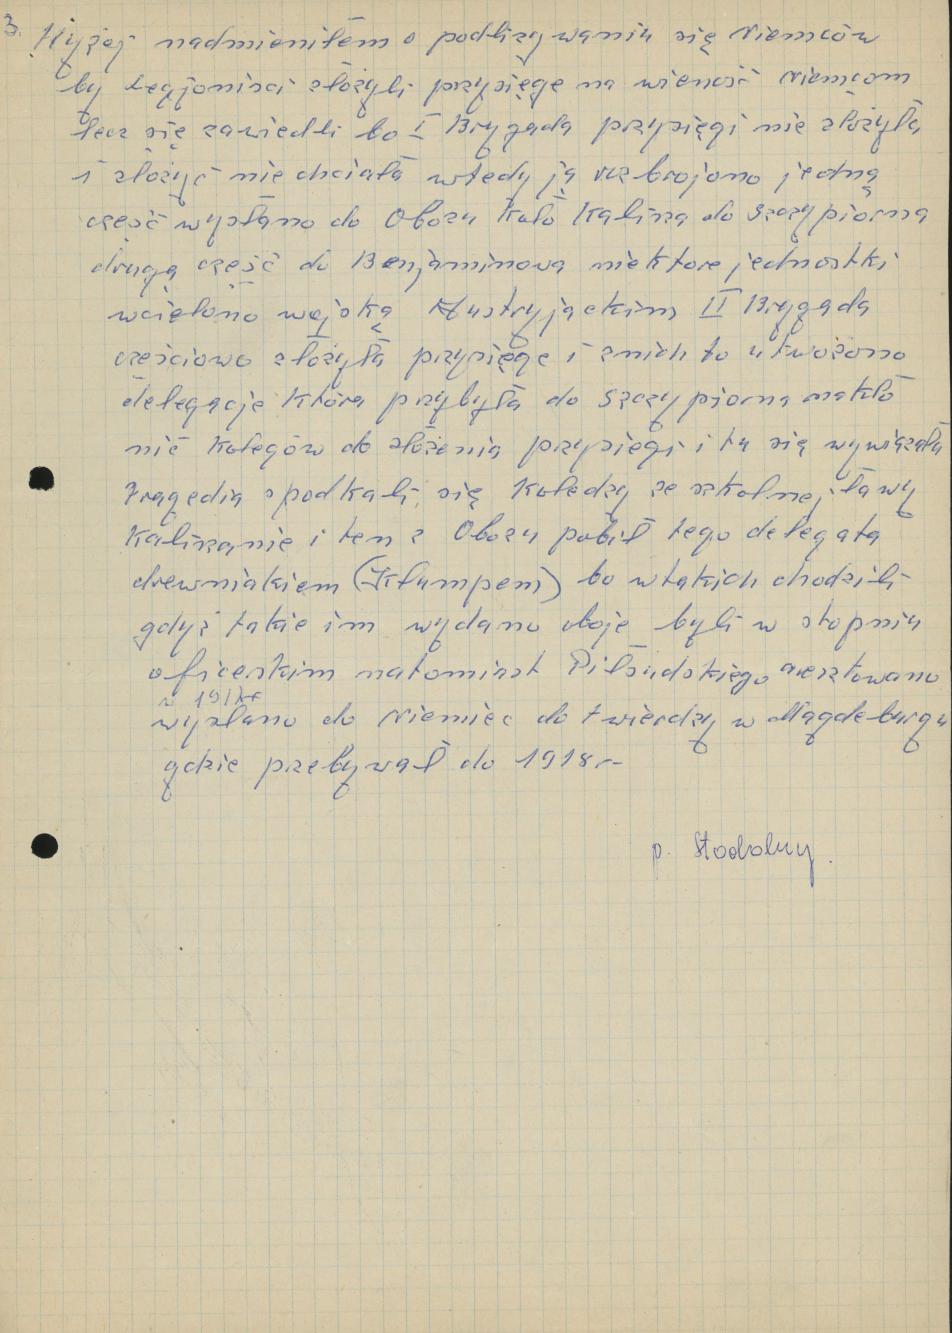 3.
Wyżej nadmieniłem o podlizywaniu się Niemców
by Legjoniści złożyli przysięgę na wieność Niemcom
lecz się zawiedli bo I Brygada przysięgi nie złożyła
i złożyć nie chciała wtedy ją rozbrojono jedną
cześć wysłano do Obozu koło Kalisza do Szczypiorna
drugą cześć do Benjaminowa niektore jednostki
wcielono wojską Austryjackim II Brygada
cześciowo złożyła przysięgę i znich to utwożono
delegacje która przybyła do Szczypiorna nakło
nić kolegów do złożenia przysięgi i tu się wywiązała
tragedia spodkali się koledzy ze szkolnej ławy
Kaliszanie i ten z Obozu pobił tego delegata
drewniakiem (Klumpem) bo wtakich chodzili
gdyż takie im wydano oboje byli w stopniu
oficerskim natomiast Piłsudskiego aresztowano
w 1917r
wysłano do Niemiec do twierdzy w Magdeburgu
gdzie przebywał do 1918r
p. Stodolny.